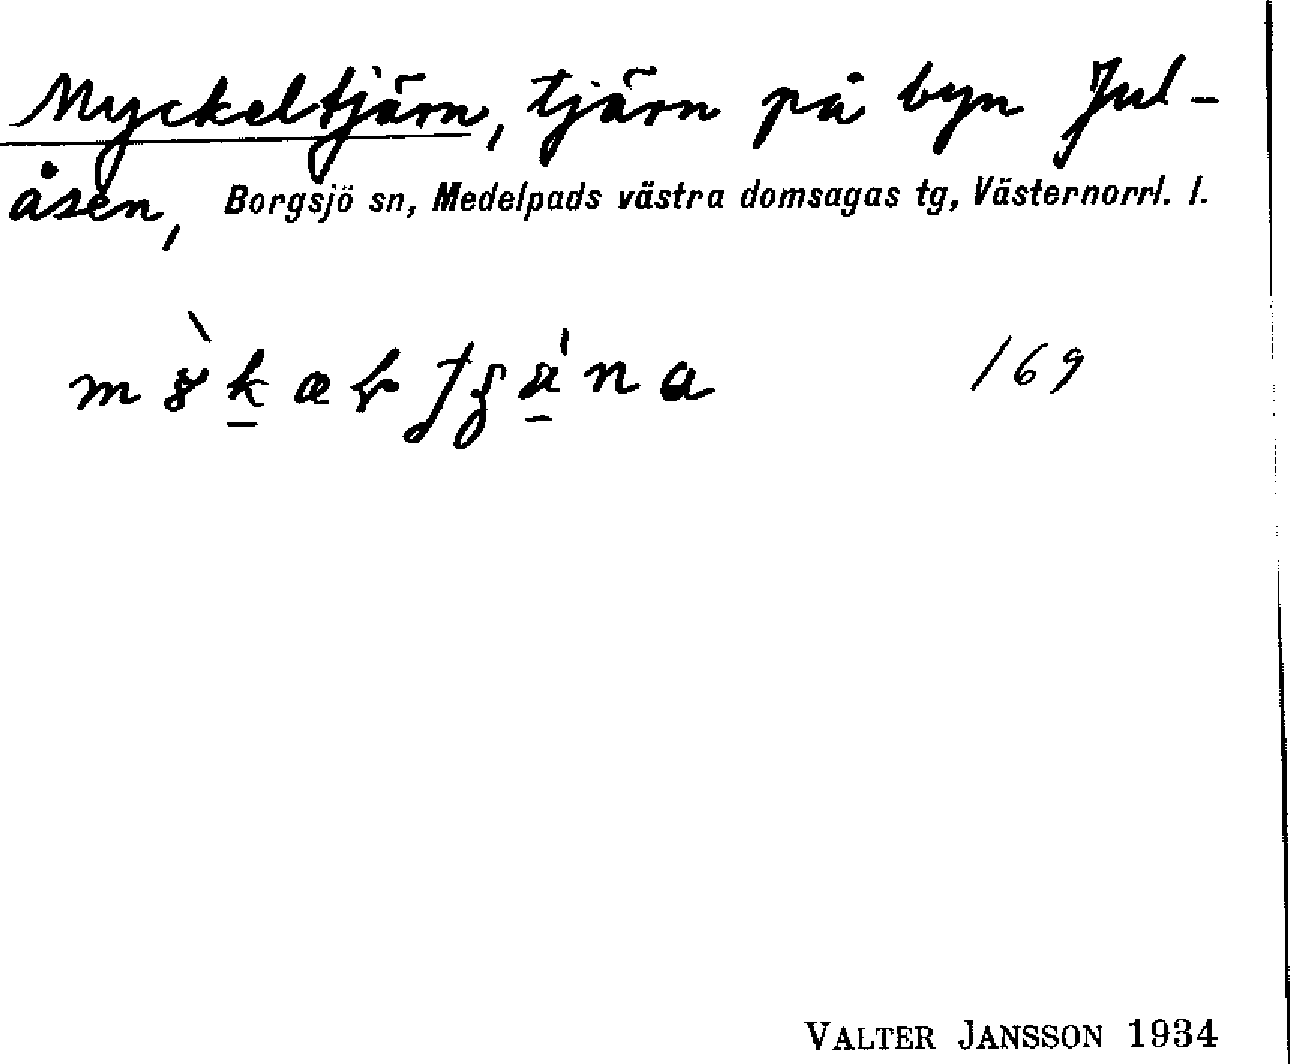 Myckeltjärn, tjärn på byn Jul-
åsen, Borgsjö sn, Medelpads västra domsagas tg, Västernorrl. l.
169
VALTER JANSSON 1934